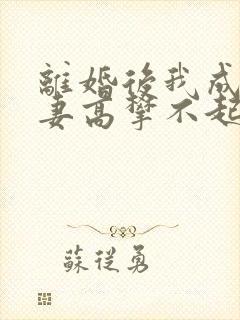 離婚後我成
妻高攀不起
蘇從勇